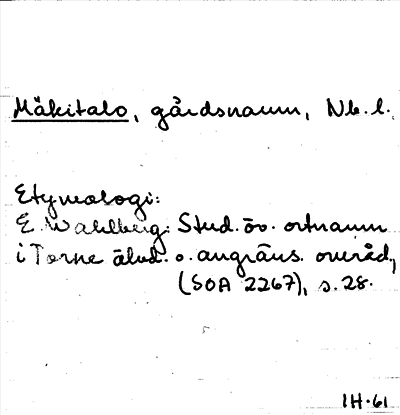 Mäkitalo, gårdsnamn, Nb. l.
Etymologi:
E. Wahlberg. Stud. öv. ortnamn
i Torne älvd. o. angräns. områd.,
(SOA 2267), s. 28.
IH.61